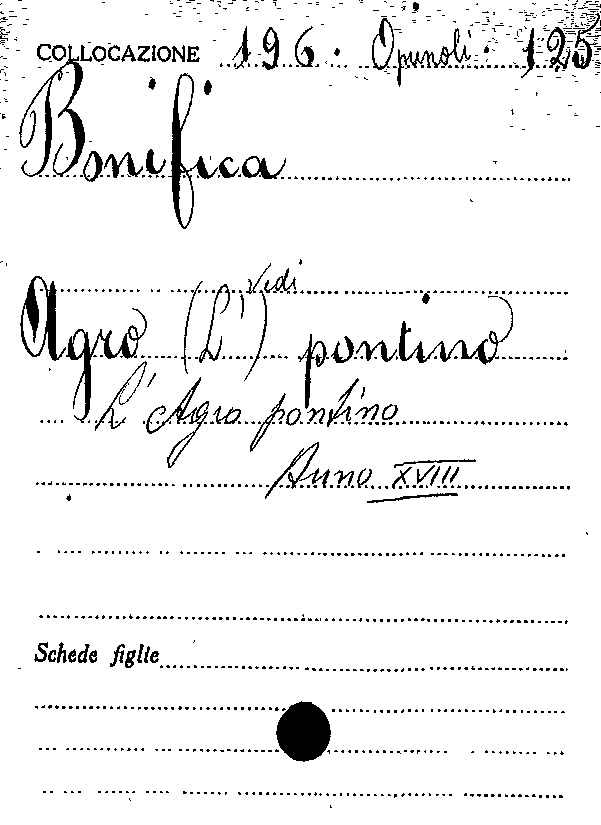 COLLOCAZIONE 196. Opuscoli. 125
Bonifica
Vedi
Agro (L') pontino
L'Agro pontino
Anno XVIII
Schede figlie